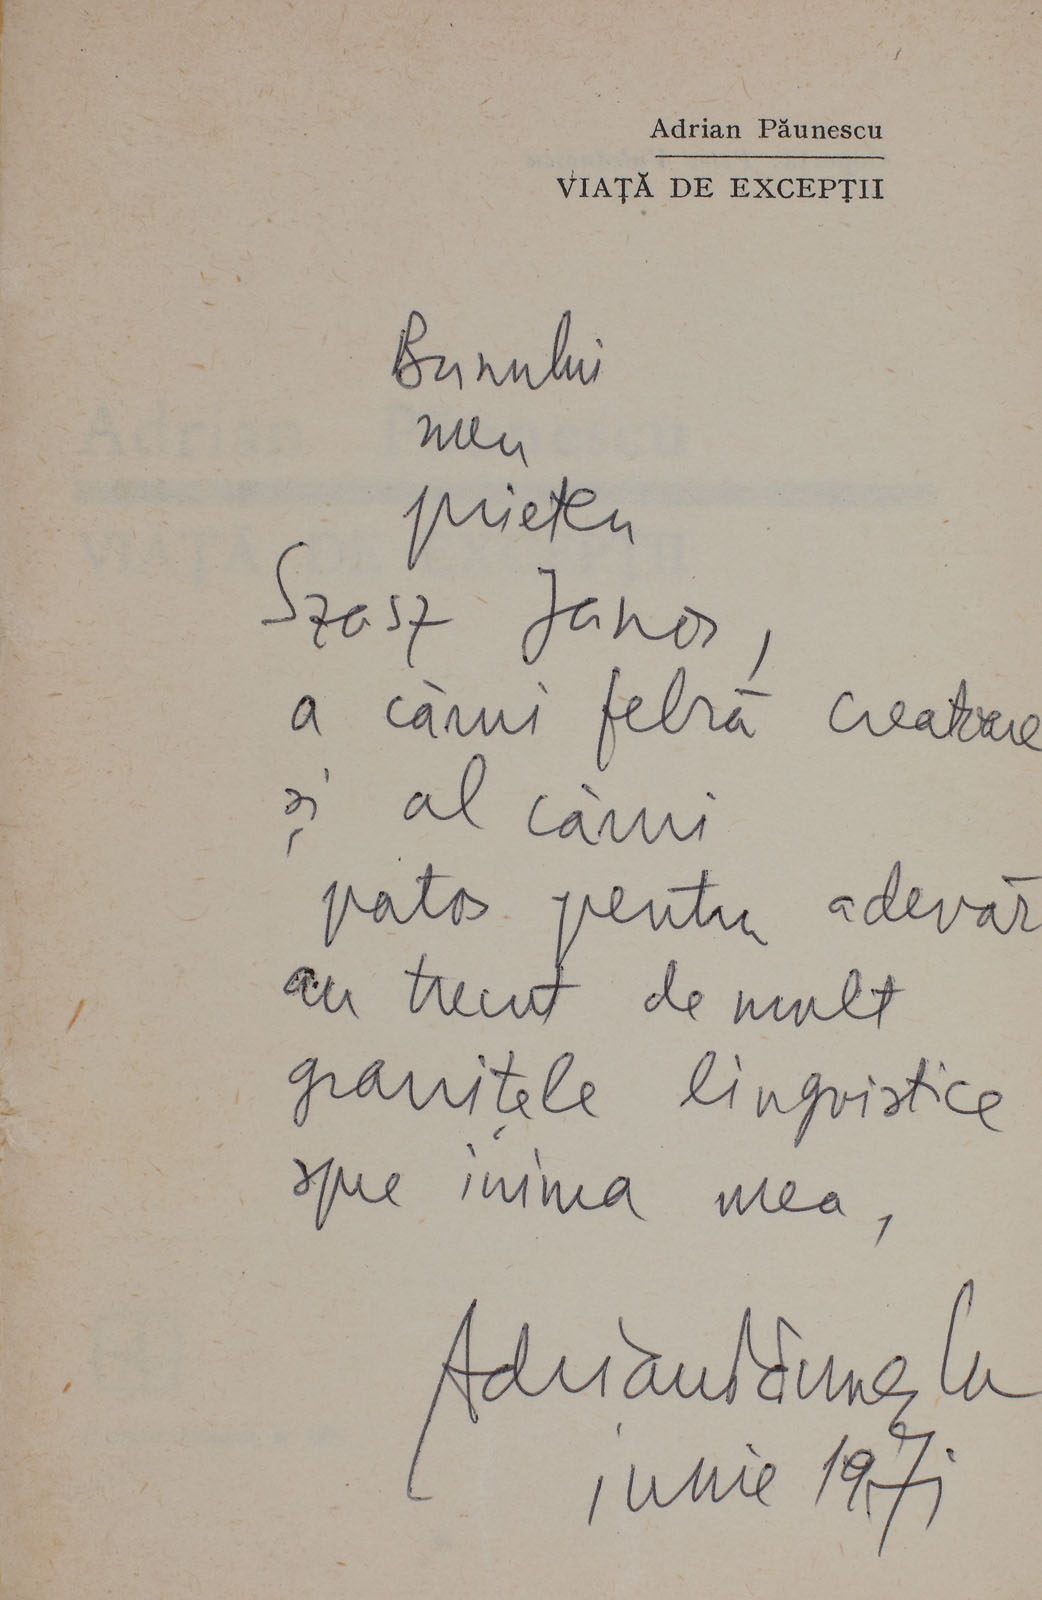 Adrian Păunescu
VIAȚĂ DE EXCEPȚII
Bunului
meu
prieten
Szasz Janos,
a cărui febră creatoare
și al cărui
patos pentru adevăr
au trecut de mult
granițele lingvistice
spre inima mea,
Adrian Păunescu
iunie 1971